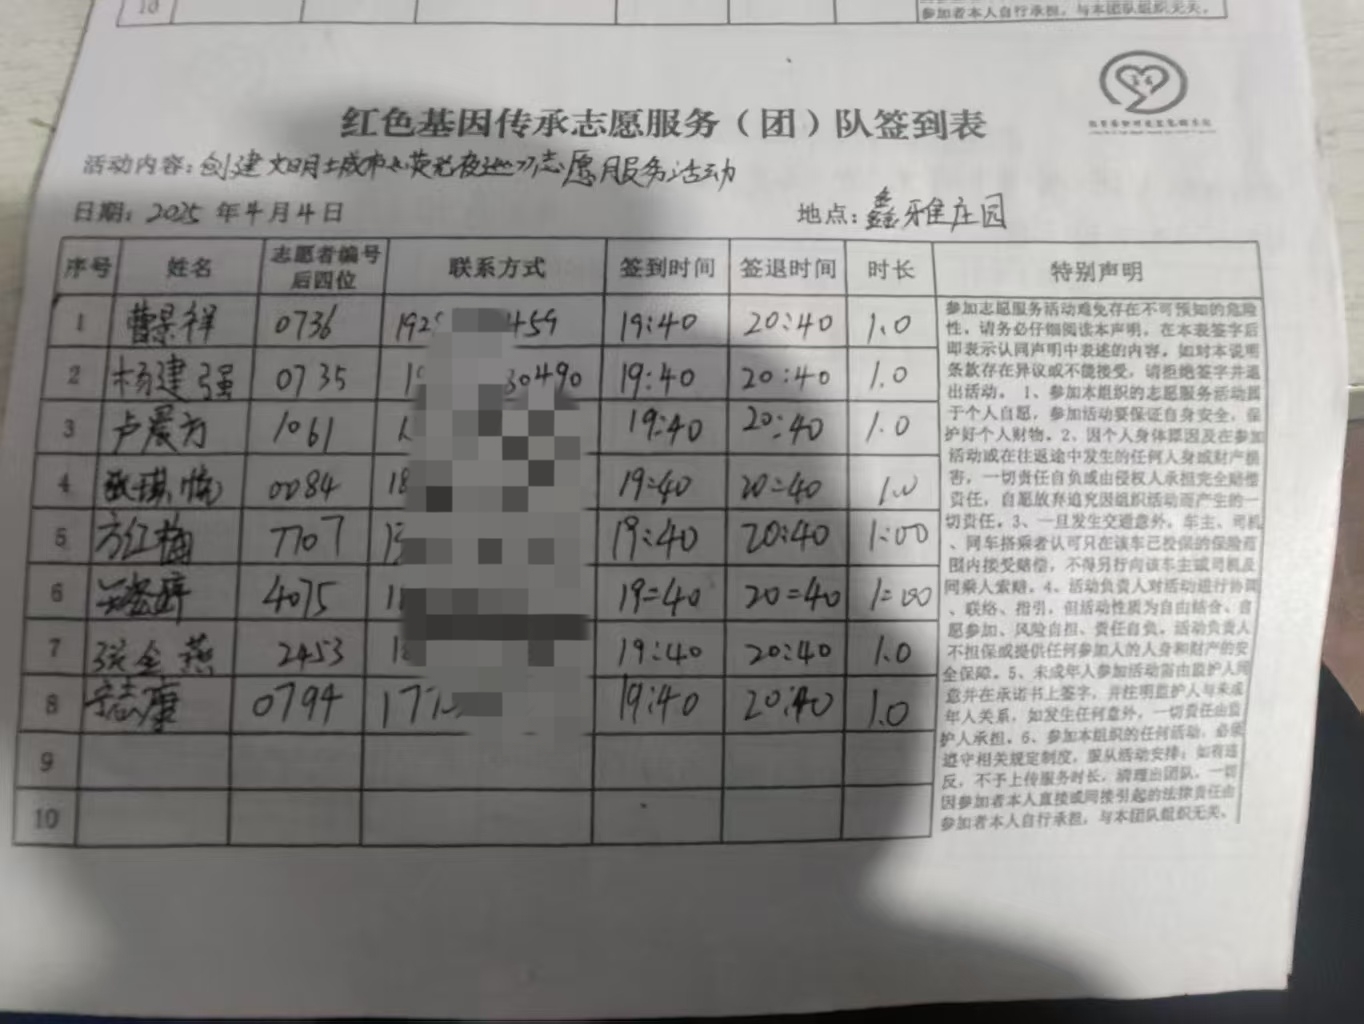 10
参加者本人自行承担，与本团队组织无关。
红色基因传承志愿服务（团）队签到表
活动内容：创建文明城市“荧光夜巡”志愿服务活动
日期：2025年4月4日 地点：鑫雅庄园
序号 姓名 志愿者编号后四位 联系方式 签到时间 签退时间 时长 特别声明
1 曹景祥 0736 192 459 19:40 20:40 1.0
2 杨建强 0735 1 30490 19:40 20:40 1.0
3 卢晨方 1061 1 19:40 20:40 1.0
4 0084 18 19:40 20:40 1.0
5 方红梅 7707 19:40 20:40 1:00
6 4075 1 19:40 20:40 1:00
7 张全燕 2453 1 19:40 20:40 1.0
8 志康 0794 17 19:40 20:40 1.0
9
10
参加志愿服务活动难免存在不可预知的危险
性，请务必仔细阅读本声明，在本表签字后
即表示认同声明中表述的内容，如对本说明
条款存在异议或不能接受，请拒绝签字并退
出活动。1、参加本组织的志愿服务活动属
于个人自愿，参加活动要保证自身安全，保
护好个人财物。2、因个人身体原因及在参加
活动或在往返途中发生的任何人身或财产损
害，一切责任自负或由侵权人承担完全赔偿
责任，自愿放弃追究因组织活动而产生的一
切责任。3、一旦发生交通意外，车主、司机
、同车搭乘者认可只在该车已投保的保险范
围内接受赔偿，不得另行向该车主或司机及
同乘人索赔。4、活动负责人对活动进行协调
、联络、指引，但活动性质为自由结合、自
愿参加、风险自担、责任自负，活动负责人
不担保或提供任何参加人的人身和财产的安
全保障。5、未成年人参加活动需由监护人同
意并在承诺书上签字，并注明监护人与未成
年人关系，如发生任何意外，一切责任由监
护人承担。6、参加本组织的任何活动，必须
遵守相关规定制度，服从活动安排；如有违
反，不予上传服务时长，清理出团队，一切
因参加者本人直接或间接引起的法律责任由
参加者本人自行承担，与本团队组织无关。